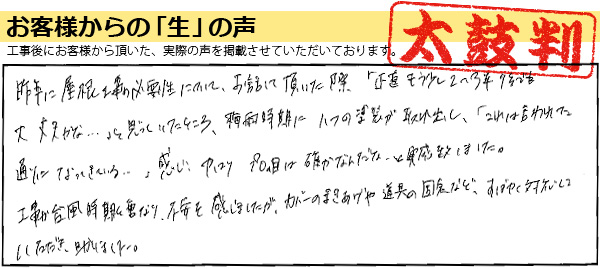 お客様からの「生」の声
太鼓判
工事後にお客様から頂いた、実際の声を掲載させていただいております。
昨年に屋根工事の必要性について、お話して頂いた際、「正直もう少し2〜3年 大
丈夫かな…」と思っていたところ、梅雨時期に 1つの が 出し、「これは言われた
通りになってきている…」感じ、やはりプロの目は確かなんだな…と実感致しました。
工事が台風時期と重なり、不安を感じましたが、カバーのまきあげや道具の固定など、すばやく対応して
いただき、助かりました。